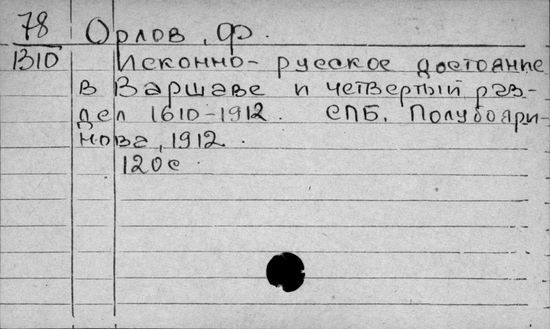 78 Орлов, Ф.
1310 Исконно-русское достояние
в Варшаве и четвертый раз-
дел 1610-1912. СПБ. Полубояри-
нова, 1912.
120с